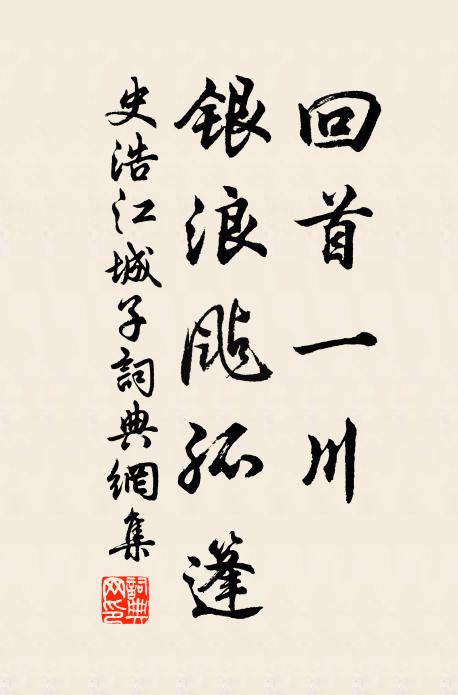 回首一川
銀浪颭孤篷
史浩江城子詞典網集
詞典网印